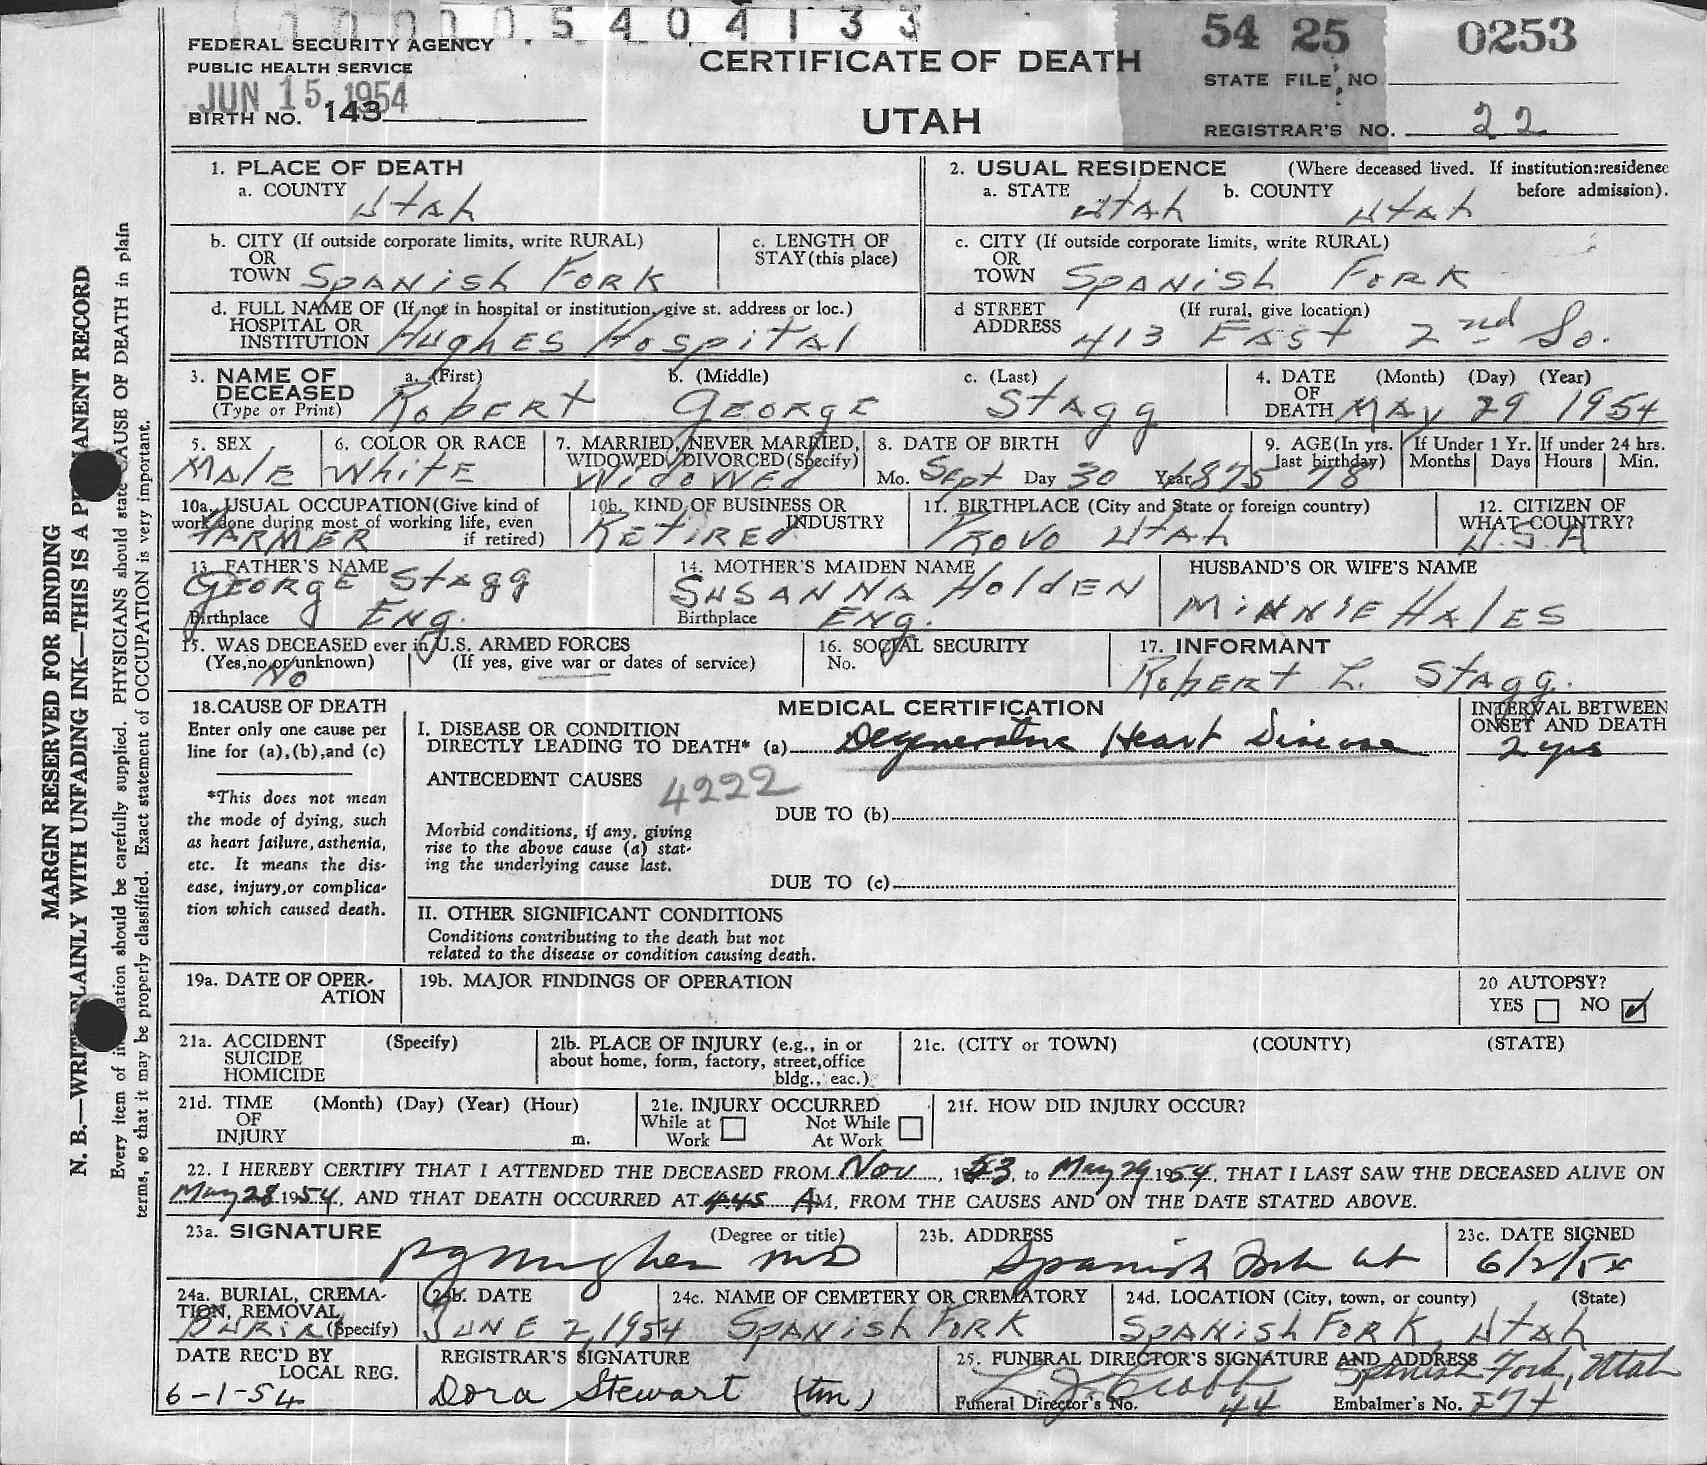 0 0 0 0 0 5 4 0 4 1 3 3
FEDERAL SECURITY AGENCY
PUBLIC HEALTH SERVICE
JUN 15 1954
BIRTH NO. 143
CERTIFICATE OF DEATH
UTAH
54 25 0253
STATE FILE NO
REGISTRAR'S NO. 22
1. PLACE OF DEATH
a. COUNTY Utah
2. USUAL RESIDENCE (Where deceased lived. If institution:residence before admission).
a. STATE Utah b. COUNTY Utah
b. CITY (If outside corporate limits, write RURAL)
OR
TOWN Spanish Fork
c. LENGTH OF
STAY (this place)
c. CITY (If outside corporate limits, write RURAL)
OR
TOWN Spanish Fork
d. FULL NAME OF (If not in hospital or institution, give st. address or loc.)
HOSPITAL OR
INSTITUTION Hughes Hospital
d STREET (If rural, give location)
ADDRESS 413 East 2nd So.
3. NAME OF DECEASED (Type or Print)
a. (First) b. (Middle) c. (Last)
Robert George Stagg
4. DATE OF DEATH (Month) (Day) (Year)
May 29 1954
5. SEX
Male
6. COLOR OR RACE
White
7. MARRIED, NEVER MARRIED,
WIDOWED, DIVORCED (Specify)
Widowed
8. DATE OF BIRTH
Mo. Sept Day 30 Year 1875
9. AGE (In yrs. last birthday)
78
If Under 1 Yr. Months Days
If under 24 hrs. Hours Min.
10a. USUAL OCCUPATION (Give kind of
work done during most of working life, even
if retired)
Farmer
10b. KIND OF BUSINESS OR
INDUSTRY
Retired
11. BIRTHPLACE (City and State or foreign country)
Provo Utah
12. CITIZEN OF
WHAT COUNTRY?
U.S.A
13. FATHER'S NAME
George Stagg
Birthplace Eng.
14. MOTHER'S MAIDEN NAME
Susanna Holden
Birthplace Eng.
HUSBAND'S OR WIFE'S NAME
Minnie Hales
15. WAS DECEASED ever in U.S. ARMED FORCES
(Yes, no, or unknown) (If yes, give war or dates of service)
No
16. SOCIAL SECURITY
No.
17. INFORMANT
Robert L. Stagg.
18. CAUSE OF DEATH
Enter only one cause per
line for (a), (b), and (c)
*This does not mean
the mode of dying, such
as heart failure, asthenia,
etc. It means the dis-
ease, injury, or complica-
tion which caused death.
MEDICAL CERTIFICATION
I. DISEASE OR CONDITION
DIRECTLY LEADING TO DEATH* (a) Degenerative Heart Disease
INTERVAL BETWEEN
ONSET AND DEATH
2 yrs
ANTECEDENT CAUSES 4222
DUE TO (b)
Morbid conditions, if any, giving
rise to the above cause (a) stat-
ing the underlying cause last.
DUE TO (c)
II. OTHER SIGNIFICANT CONDITIONS
Conditions contributing to the death but not
related to the disease or condition causing death.
19a. DATE OF OPER-
ATION
19b. MAJOR FINDINGS OF OPERATION
20 AUTOPSY?
YES NO ✓
21a. ACCIDENT (Specify)
SUICIDE
HOMICIDE
21b. PLACE OF INJURY (e.g., in or
about home, form, factory, street, office
bldg., eac.)
21c. (CITY or TOWN) (COUNTY) (STATE)
21d. TIME (Month) (Day) (Year) (Hour)
OF
INJURY m.
21e. INJURY OCCURRED
While at Work Not While At Work
21f. HOW DID INJURY OCCUR?
22. I HEREBY CERTIFY THAT I ATTENDED THE DECEASED FROM Nov, 1953, to May 29 1954, THAT I LAST SAW THE DECEASED ALIVE ON
May 28 1954, AND THAT DEATH OCCURRED AT 4:45 AM, FROM THE CAUSES AND ON THE DATE STATED ABOVE.
23a. SIGNATURE (Degree or title)
Hughes MD
23b. ADDRESS
Spanish Fork Ut
23c. DATE SIGNED
6/2/54
24a. BURIAL, CREMA-
TION, REMOVAL
(Specify)
Burial
24b. DATE
June 2, 1954
24c. NAME OF CEMETERY OR CREMATORY
Spanish Fork
24d. LOCATION (City, town, or county) (State)
Spanish Fork, Utah
DATE REC'D BY
LOCAL REG.
6-1-54
REGISTRAR'S SIGNATURE
Dora Stewart (tm)
25. FUNERAL DIRECTOR'S SIGNATURE AND ADDRESS
Spanish Fork, Utah
Funeral Director's No. 44
Embalmer's No.
MARGIN RESERVED FOR BINDING
N. B.—WRITE PLAINLY WITH UNFADING INK—THIS IS A PERMANENT RECORD
Every item of information should be carefully supplied. PHYSICIANS should state CAUSE OF DEATH in plain
terms, so that it may be properly classified. Exact statement of OCCUPATION is very important.